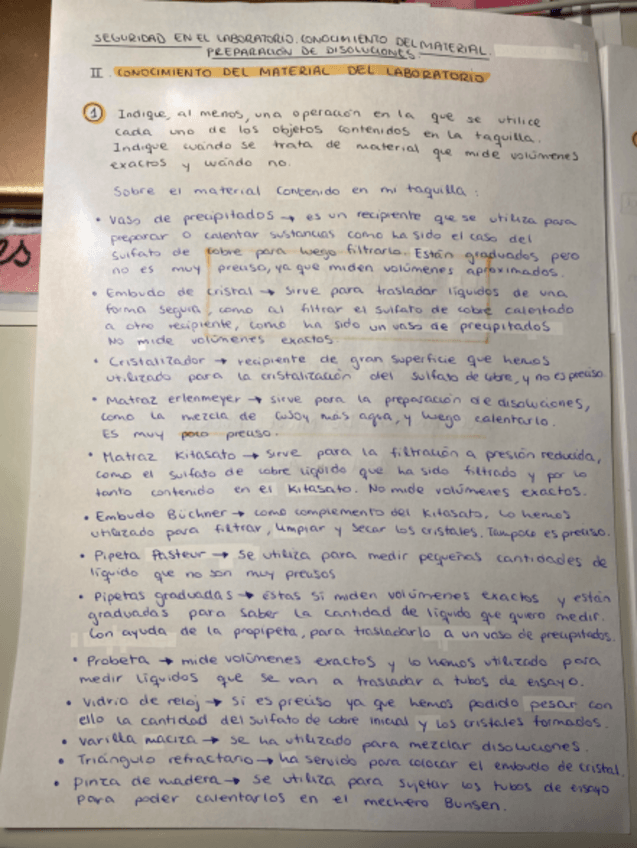 SEGURIDAD EN EL LABORATORIO. CONOCIMIENTO DEL MATERIAL.
PREPARACIÓN DE DISOLUCIONES.
II. CONOCIMIENTO DEL MATERIAL DEL LABORATORIO
1 Indique, al menos, una operación en la que se utilice
cada uno de los objetos contenidos en la taquilla.
Indique cuándo se trata de material que mide volúmenes
exactos y cuándo no.
Sobre el material contenido en mi taquilla:
es
• Vaso de precipitados → es un recipiente que se utiliza para
preparar o calentar sustancias como ha sido el caso del
sulfato de cobre para luego filtrarlo. Están graduados pero
no es muy preciso, ya que miden volúmenes aproximados.
• Embudo de cristal → sirve para trasladar líquidos de una
forma segura, como al filtrar el sulfato de cobre calentado
a otro recipiente, como ha sido un vaso de precipitados
No mide volúmenes exactos
• Cristalizador → recipiente de gran superficie que hemos
utilizado para la cristalización del sulfato de cobre, y no es preciso.
• Matraz erlenmeyer → sirve para la preparación de disoluciones,
como la mezcla de CuSO4 más agua, y luego calentarlo.
Es muy poco preciso.
• Matraz Kitasato → sirve para la filtración a presión reducida,
como el sulfato de cobre líquido que ha sido filtrado y por lo
tanto contenido en el Kitasato. No mide volúmenes exactos.
• Embudo Büchner → como complemento del Kitasato, lo hemos
utilizado para filtrar, limpiar y secar los cristales. Tampoco es preciso.
• Pipeta Pasteur → se utiliza para medir pequeñas cantidades de
líquido que no son muy precisos
• Pipetas graduadas → éstas sí miden volúmenes exactos y están
graduadas para saber la cantidad de líquido que quiero medir.
Con ayuda de la propipeta, para trasladarlo a un vaso de precipitados.
• Probeta → mide volúmenes exactos y lo hemos utilizado para
medir líquidos que se van a trasladar a tubos de ensayo.
• Vidrio de reloj → Sí es preciso ya que hemos podido pesar con
ello la cantidad del sulfato de cobre inicial y los cristales formados.
• Varilla maciza → se ha utilizado para mezclar disoluciones.
• Triángulo refractario → ha servido para colocar el embudo de cristal.
• Pinza de madera → se utiliza para sujetar los tubos de ensayo
para poder calentarlos en el mechero Bunsen.